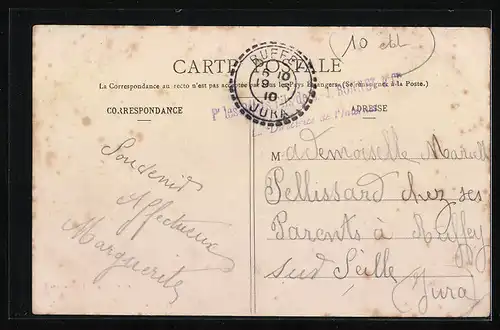 10 ctl
CARTE POSTALE
La Correspondance au recto n'est pas acceptée par tous les Pays Étrangers (Se renseigner à la Poste.)
RUFFEY
10
9
10
JURA
CORRESPONDANCE
ADRESSE
Souvenir
Affectueux
Marguerite
Mademoiselle
Pellissard chez ses
Parents à Ruffey
sud Seille
(Jura)